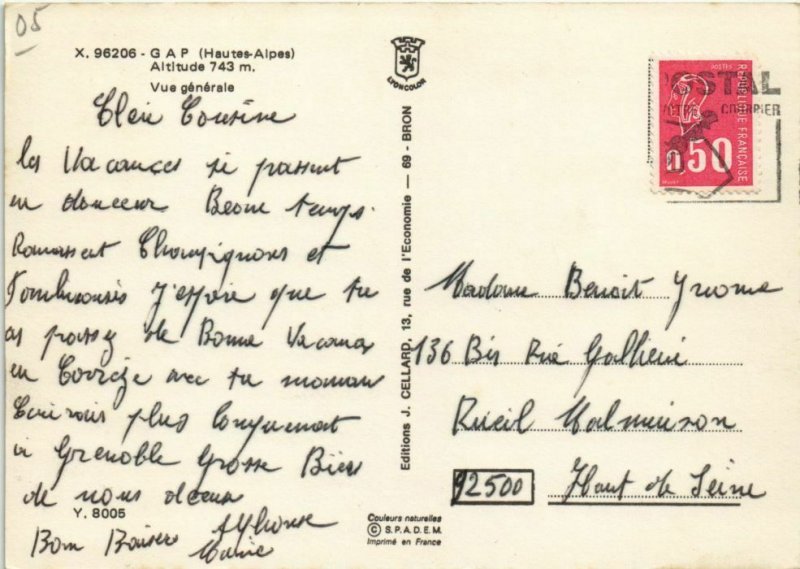 05
X. 96206 - GAP (Hautes-Alpes)
Altitude 743 m.
Vue générale
Chère Cousine
les Vacances se passent
en douceur Beau temps.
Ramassent Champignons et
J'espère que tu
as passez de Bonne Vacances
en Corrèze avec ta maman
plus longuement
Grenoble Grosse Bises
de nous deux
Y. 8005
Bon Baisers Alphonse
Marie
LYONCOLOR
Editions J. CELLARD, 13, rue de l'Economie — 69 - BRON
Couleurs naturelles
© S.P.A.D.E.M.
Imprimé en France
POSTES
0.50
REPUBLIQUE FRANÇAISE
POSTAL
VOTRE COURRIER
Madame Benoit Yvonne
136 Bis Rue Gallieni
Rueil Malmaison
92500 Haut de Seine